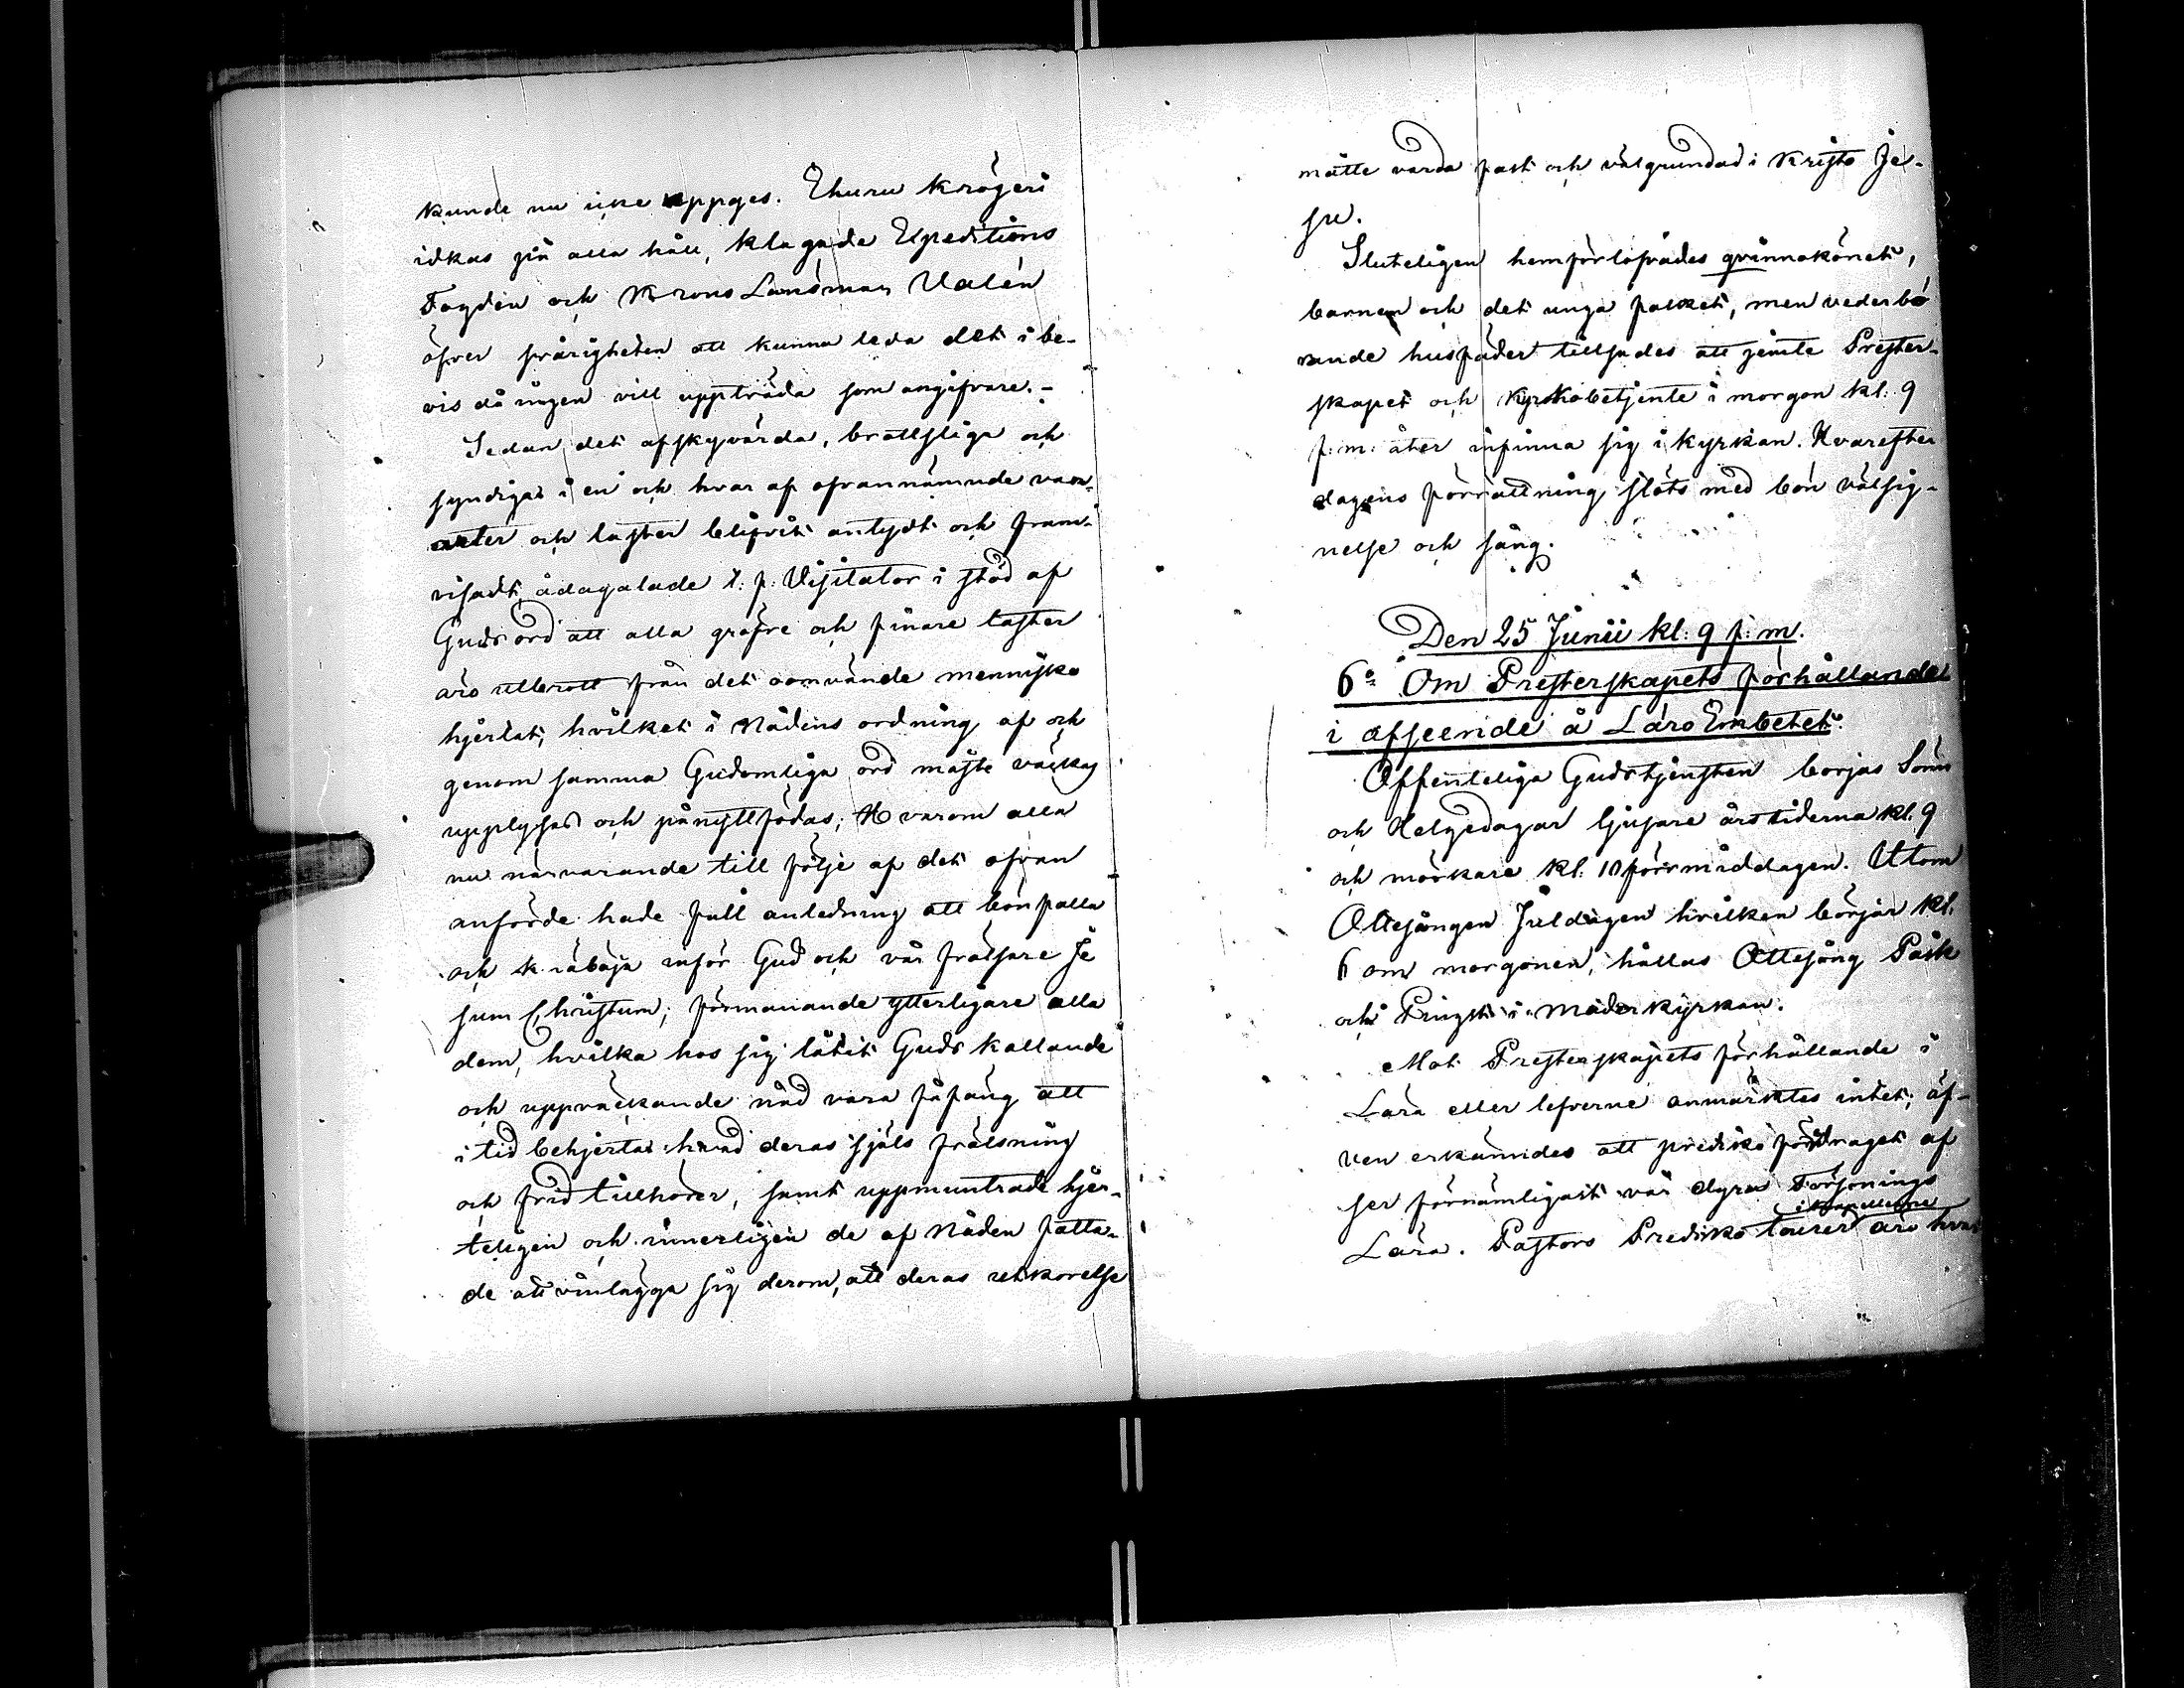 kunde nu icke uppges. Ehuru krögeri
idkas på alla håll, klagade Expeditions
Fogden och Krons Länsman Valén
öfver svårigheten att kunna leda det i be-
vis då ingen vill uppträda som angifvare. -
Sedan det afskyvärda, brottsliga och
syndiga i en och hvar af ofvannämnde van-
arter och laster blifvit antydt och fram-
visadt ådagalade t. f. Visitator i stöd af
Guds ord att alla gröfre och finare laster
äro utbrott från det oomvände mennisko
hjertat, hvilket i Nådens ordning af och
genom samma Gudomliga ord måste väckas
upplysas och pånyttfödas; Hvarom alla
nu närvarande till följe af det ofvan
anförde hade full anledning att bönfalla
och åkalla inför Gud och vår frälsare Je
sum Christum; förmanande ytterligare alla
dem, hvilka hos sig låtit Guds kallande
och uppväckande nåd vara fåfäng att
i tid behjerta hvad deras själs frälsning
och frid tillhörer, samt uppmuntrade hjer-
teligen och innerligen de af Nåden fatta-
de att vinlägga sig derom, att deras utkorelse
måtte varda fast och välgrundad i Kristo Je-
su.
Sluteligen hemförlofvades qvinnokönet,
barnen och det unga folket, men vederbö
rande husfäder tillsades att jemte Prester-
skapet och Kyrkobetjente i morgon kl. 9
f: m: åter infinna sig i kyrkan. Hvarefter
dagens förrättning slöts med bön välsig-
nelse och sång.
Den 25 Junii kl: 9 f: m.
6º Om Presterskapets förhållande
i afseende å LäroEmbetet.
Offenteliga Gudstjensten börjas Sönn
och Helgedagar ljusare årstiderna kl. 9
och mörkare kl. 10 förrmiddagen. Utom
Ottesången Juldagen hvilken börjar kl.
6 om morgonen, hållas Ottesång Påsk
och Pingst i Moderkyrkan.
Mot Presterskapets förhållande i
Lära eller lefverne anmärktes intet; äf-
ven erkändes att predikoföredraget af
ser förnämligast vår dyra Försonings
i kapellerne
Lära. Pastors Predikotourer äro hvar